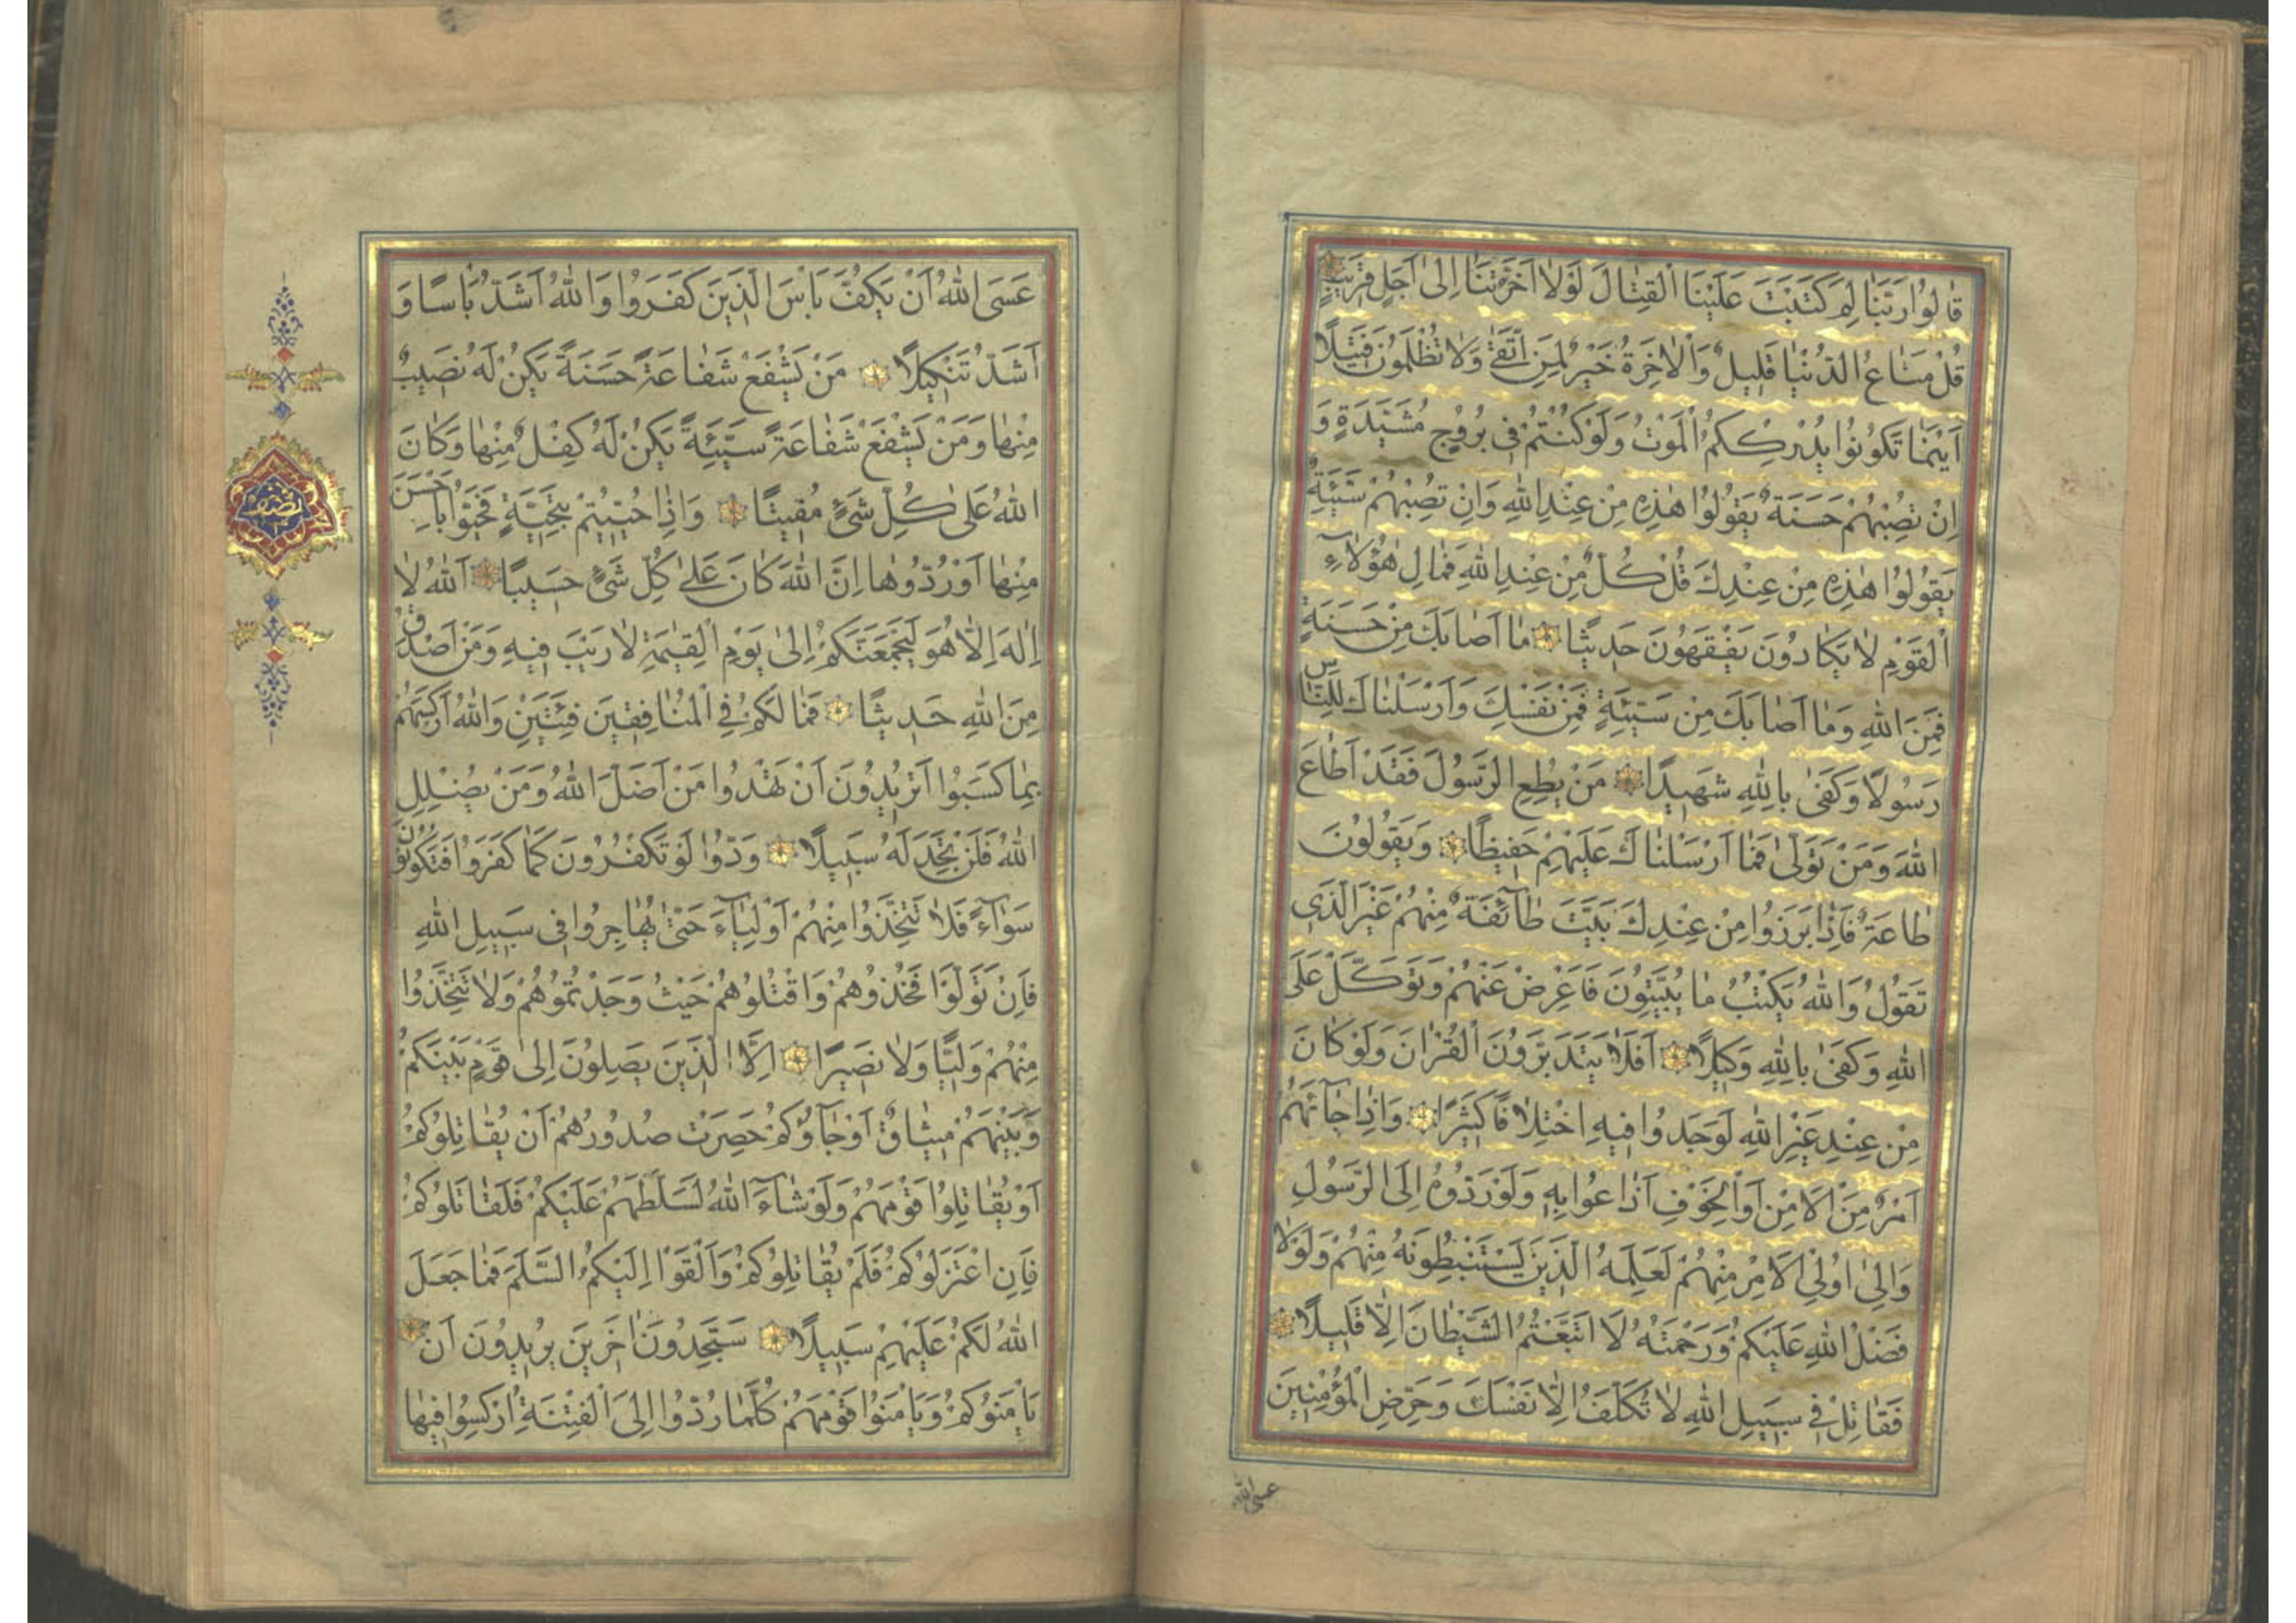 قَالُوا رَبَّنَا لِمَ كَتَبْتَ عَلَيْنَا الْقِتَالَ لَوْلَا اَخَّرْتَنَا اِلٰى اَجَلٍ قَرِيبٍ
قُلْ مَتَاعُ الدُّنْيَا قَلِيلٌ وَالْاٰخِرَةُ خَيْرٌ لِمَنِ اتَّقٰى وَلَا تُظْلَمُونَ فَتِيلًا
اَيْنَمَا تَكُونُوا يُدْرِكْكُمُ الْمَوْتُ وَلَوْ كُنْتُمْ فِى بُرُوجٍ مُشَيَّدَةٍ وَ
اِنْ تُصِبْهُمْ حَسَنَةٌ يَقُولُوا هٰذِهِ مِنْ عِنْدِ اللّٰهِ وَاِنْ تُصِبْهُمْ سَيِّئَةٌ
يَقُولُوا هٰذِهِ مِنْ عِنْدِكَ قُلْ كُلٌّ مِنْ عِنْدِ اللّٰهِ فَمَالِ هٰؤُلَاۤءِ
الْقَوْمِ لَا يَكَادُونَ يَفْقَهُونَ حَدِيثًا مَا اَصَابَكَ مِنْ حَسَنَةٍ
فَمِنَ اللّٰهِ وَمَا اَصَابَكَ مِنْ سَيِّئَةٍ فَمِنْ نَفْسِكَ وَاَرْسَلْنَاكَ لِلنَّاسِ
رَسُولًا وَكَفٰى بِاللّٰهِ شَهِيدًا مَنْ يُطِعِ الرَّسُولَ فَقَدْ اَطَاعَ
اللّٰهَ وَمَنْ تَوَلّٰى فَمَا اَرْسَلْنَاكَ عَلَيْهِمْ حَفِيظًا وَيَقُولُونَ
طَاعَةٌ فَاِذَا بَرَزُوا مِنْ عِنْدِكَ بَيَّتَ طَاۤئِفَةٌ مِنْهُمْ غَيْرَ الَّذِى
تَقُولُ وَاللّٰهُ يَكْتُبُ مَا يُبَيِّتُونَ فَاَعْرِضْ عَنْهُمْ وَتَوَكَّلْ عَلَى
اللّٰهِ وَكَفٰى بِاللّٰهِ وَكِيلًا اَفَلَا يَتَدَبَّرُونَ الْقُرْاٰنَ وَلَوْ كَانَ
مِنْ عِنْدِ غَيْرِ اللّٰهِ لَوَجَدُوا فِيهِ اخْتِلَافًا كَثِيرًا وَاِذَا جَاۤئَهُمْ
اَمْرٌ مِنَ الْاَمْنِ اَوِ الْخَوْفِ اَذَاعُوا بِهِ وَلَوْ رَدُّوهُ اِلَى الرَّسُولِ
وَاِلٰى اُولِى الْاَمْرِ مِنْهُمْ لَعَلِمَهُ الَّذِينَ يَسْتَنْبِطُونَهُ مِنْهُمْ وَلَوْلَا
فَضْلُ اللّٰهِ عَلَيْكُمْ وَرَحْمَتُهُ لَاتَّبَعْتُمُ الشَّيْطَانَ اِلَّا قَلِيلًا
فَقَاتِلْ فِى سَبِيلِ اللّٰهِ لَا تُكَلَّفُ اِلَّا نَفْسَكَ وَحَرِّضِ الْمُؤْمِنِينَ
عسى الله
عَسَى اللّٰهُ اَنْ يَكُفَّ بَاْسَ الَّذِينَ كَفَرُوا وَاللّٰهُ اَشَدُّ بَاْسًا وَ
اَشَدُّ تَنْكِيلًا مَنْ يَشْفَعْ شَفَاعَةً حَسَنَةً يَكُنْ لَهُ نَصِيبٌ
مِنْهَا وَمَنْ يَشْفَعْ شَفَاعَةً سَيِّئَةً يَكُنْ لَهُ كِفْلٌ مِنْهَا وَكَانَ
اللّٰهُ عَلٰى كُلِّ شَىْءٍ مُقِيتًا وَاِذَا حُيِّيتُمْ بِتَحِيَّةٍ فَحَيُّوا بِاَحْسَنَ
مِنْهَا اَوْ رُدُّوهَا اِنَّ اللّٰهَ كَانَ عَلٰى كُلِّ شَىْءٍ حَسِيبًا اَللّٰهُ لَا
اِلٰهَ اِلَّا هُوَ لَيَجْمَعَنَّكُمْ اِلٰى يَوْمِ الْقِيٰمَةِ لَا رَيْبَ فِيهِ وَمَنْ اَصْدَقُ
مِنَ اللّٰهِ حَدِيثًا فَمَا لَكُمْ فِى الْمُنَافِقِينَ فِئَتَيْنِ وَاللّٰهُ اَرْكَسَهُمْ
بِمَا كَسَبُوا اَتُرِيدُونَ اَنْ تَهْدُوا مَنْ اَضَلَّ اللّٰهُ وَمَنْ يُضْلِلِ
اللّٰهُ فَلَنْ تَجِدَ لَهُ سَبِيلًا وَدُّوا لَوْ تَكْفُرُونَ كَمَا كَفَرُوا فَتَكُونُونَ
سَوَاۤءً فَلَا تَتَّخِذُوا مِنْهُمْ اَوْلِيَاۤءَ حَتّٰى يُهَاجِرُوا فِى سَبِيلِ اللّٰهِ
فَاِنْ تَوَلَّوْا فَخُذُوهُمْ وَاقْتُلُوهُمْ حَيْثُ وَجَدْتُمُوهُمْ وَلَا تَتَّخِذُوا
مِنْهُمْ وَلِيًّا وَلَا نَصِيرًا اِلَّا الَّذِينَ يَصِلُونَ اِلٰى قَوْمٍ بَيْنَكُمْ
وَبَيْنَهُمْ مِيثَاقٌ اَوْ جَاۤؤُكُمْ حَصِرَتْ صُدُورُهُمْ اَنْ يُقَاتِلُوكُمْ
اَوْ يُقَاتِلُوا قَوْمَهُمْ وَلَوْ شَاۤءَ اللّٰهُ لَسَلَّطَهُمْ عَلَيْكُمْ فَلَقَاتَلُوكُمْ
فَاِنِ اعْتَزَلُوكُمْ فَلَمْ يُقَاتِلُوكُمْ وَاَلْقَوْا اِلَيْكُمُ السَّلَمَ فَمَا جَعَلَ
اللّٰهُ لَكُمْ عَلَيْهِمْ سَبِيلًا سَتَجِدُونَ اٰخَرِينَ يُرِيدُونَ اَنْ
يَاْمَنُوكُمْ وَيَاْمَنُوا قَوْمَهُمْ كُلَّمَا رُدُّوا اِلَى الْفِتْنَةِ اُرْكِسُوا فِيهَا
نصف